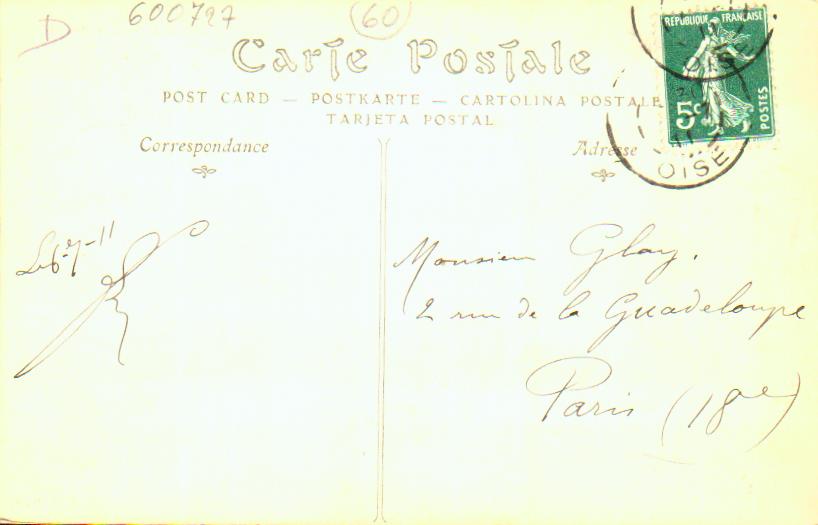 D
600727
(60)
Carte Postale
POST CARD — POSTKARTE — CARTOLINA POSTALE
TARJETA POSTAL
Correspondance
Adresse
RÉPUBLIQUE FRANÇAISE
5c
POSTES
OISE
Monsieur Glay.
2 rue de la Guadeloupe
Paris (18e)